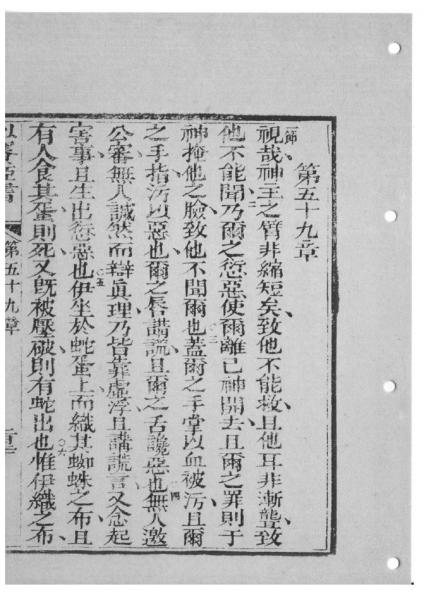 第五十九章
一節視哉神主之臂非縮短矣致他不能救且他耳非漸聾致
他不能聞乃爾之愆惡使爾離己神開去且爾之罪則于
神掩他之臉致他不聞爾也蓋爾之手掌以血被污且爾
之手指污以惡也爾之唇講謊且爾之舌讒惡也無人邀
公審無人誠然而辯眞理乃皆靠虛浮且講謊言又念起
害事且生出愆惡也伊坐於蛇蛋上而織其蜘蛛之布且
有人食其蛋則死又既被壓破則有蛇出也惟伊織之布
第五十九章